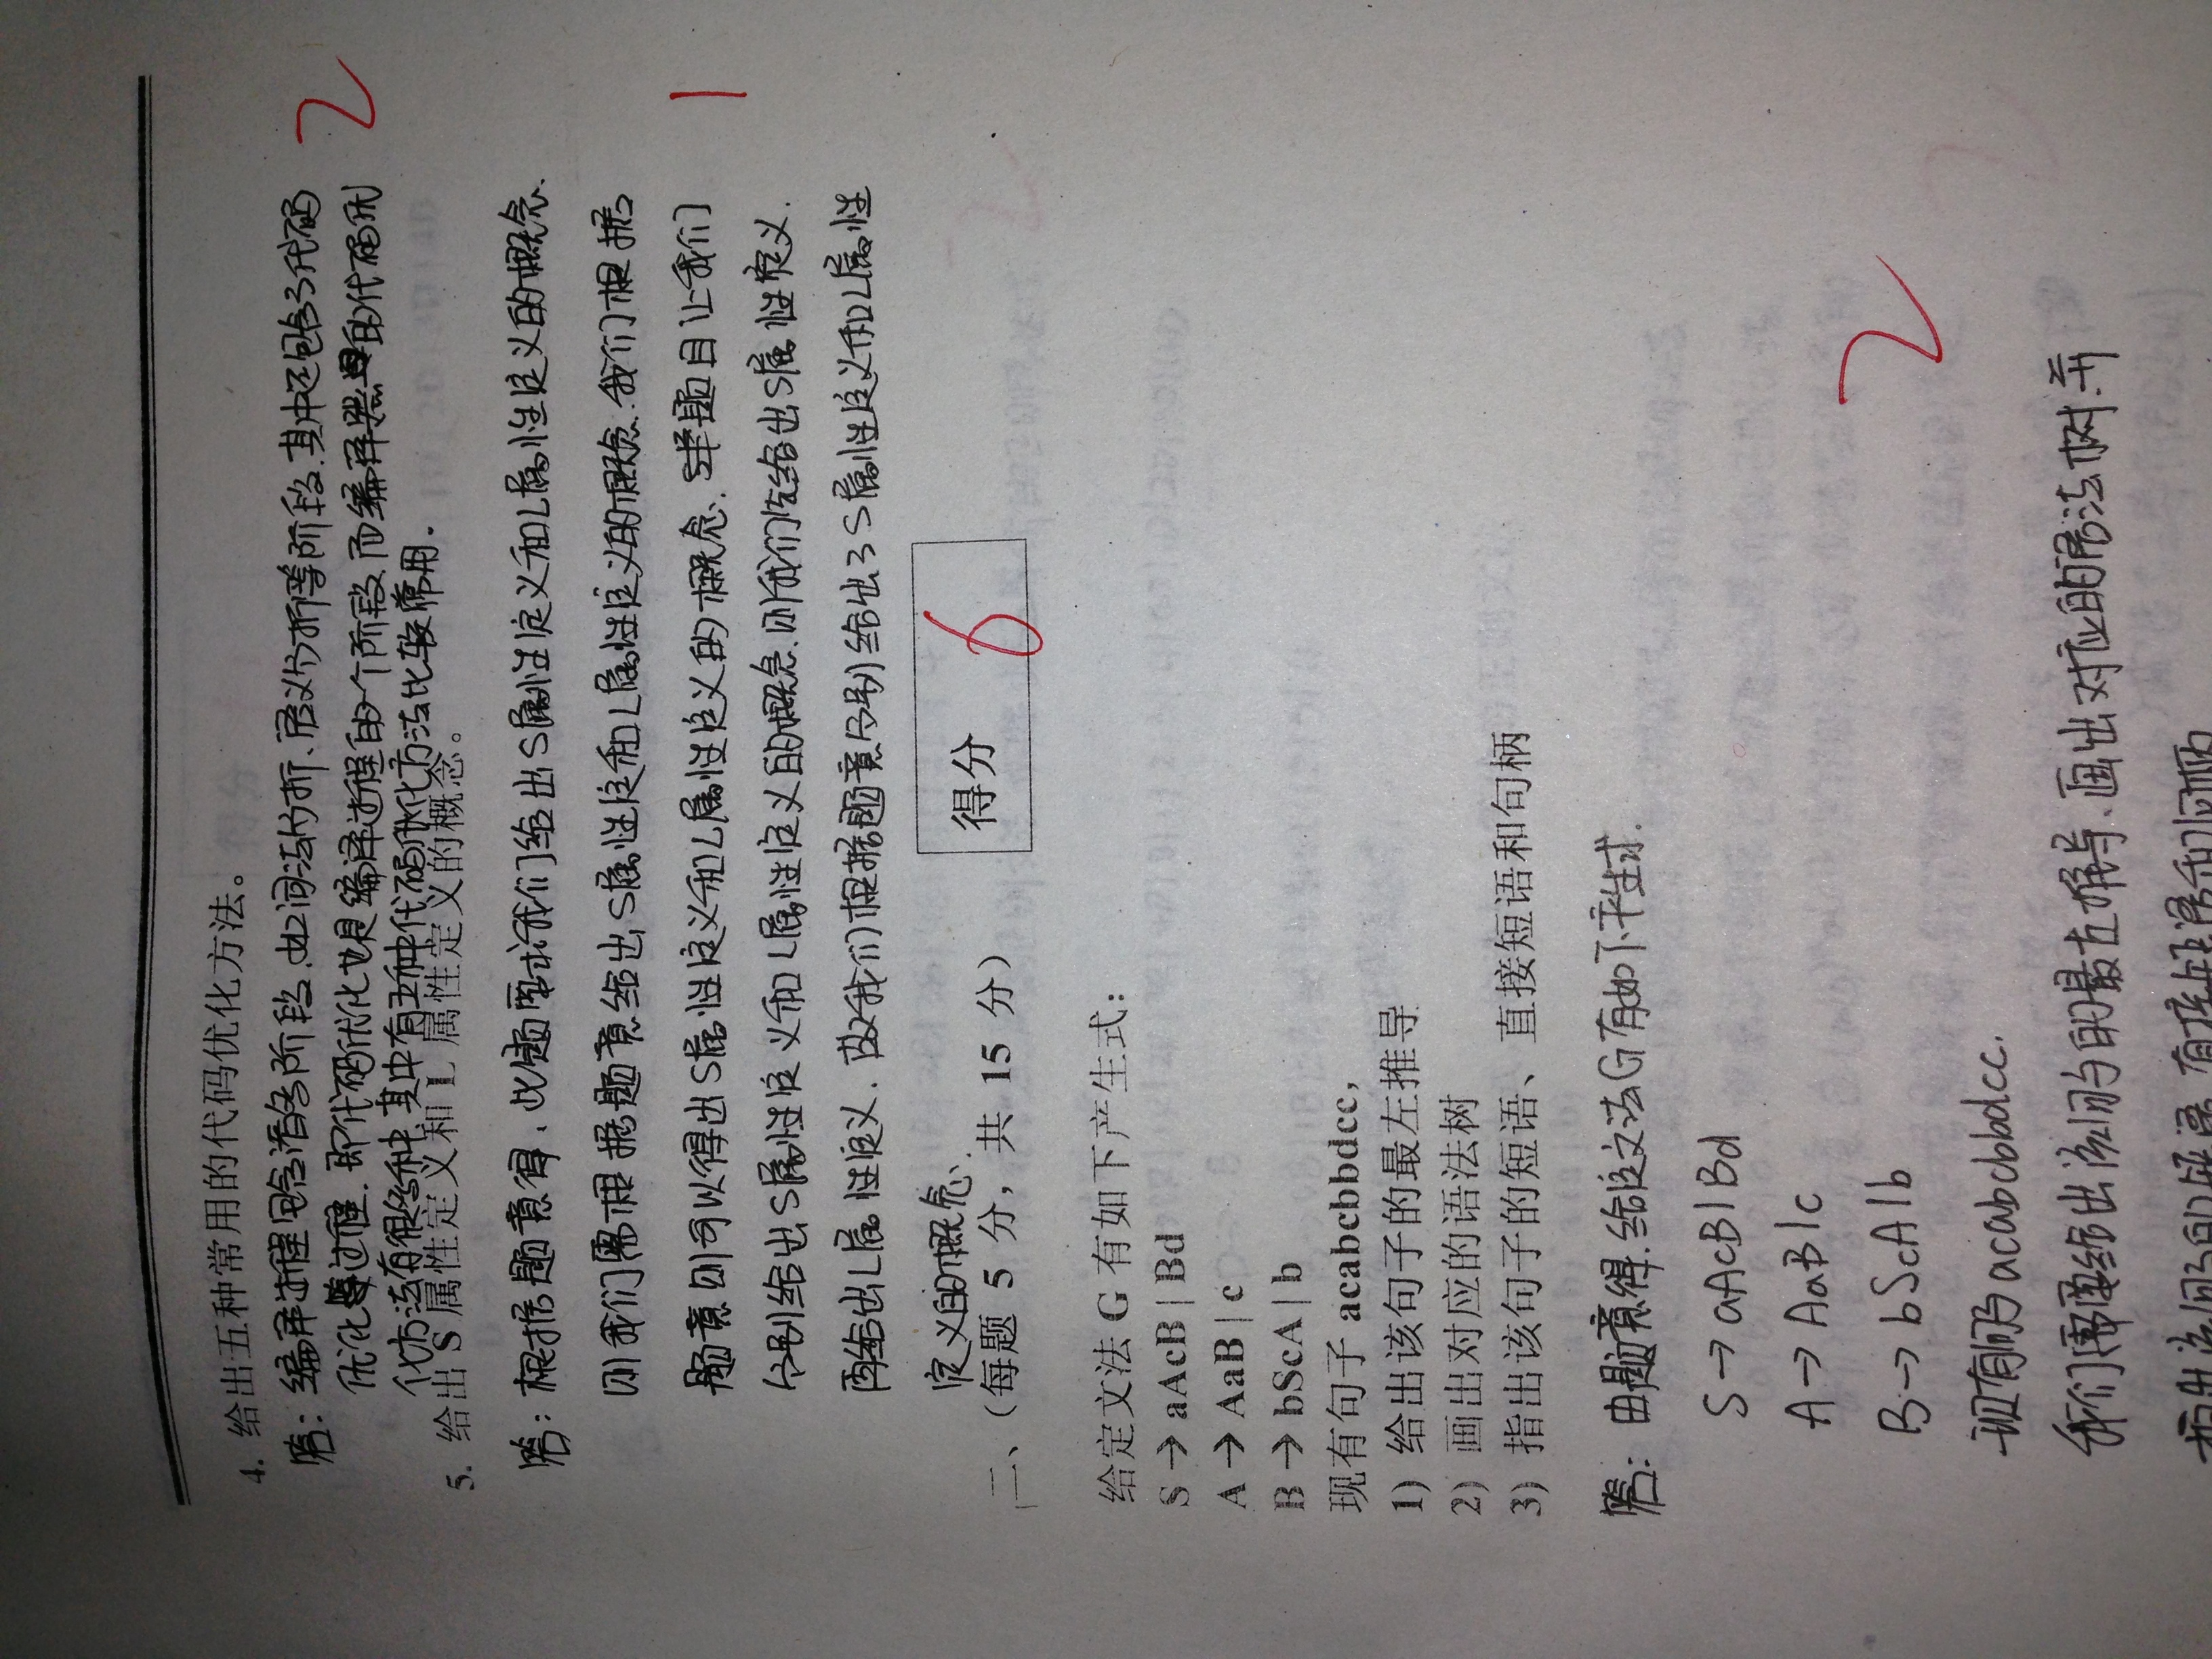 4. 给出五种常用的代码优化方法。
答: 编译过程包含诸多阶段,如词法分析、语义分析等阶段,其中还包含了代码
优化等过程. 即代码优化也是编译过程的一个阶段,而编译器的代码优
化方法有很多种,其中有五种代码优化方法比较常用.
2
5. 给出 S 属性定义和 L 属性定义的概念。
答: 根据题意得,此题要求我们给出S属性定义和L属性定义的概念.
则我们需根据题意给出S属性定和L属性定义的概念.我们根据
题意则可以得出S属性定义和L属性定义的概念. 题目让我们
分别给出S属性定义和L属性定义的概念.则我们先给出S属性定义.
再给出L属性定义. 故我们根据题意分别给出了S属性定义和L属性
定义的概念.
1
二、(每题 5 分,共 15 分)
得分 6
给定文法 G 有如下产生式:
S → aAcB | Bd
A → AaB | c
B → bScA | b
现有句子 acabcbbdcc,
1) 给出该句子的最左推导
2) 画出对应的语法树
3) 指出该句子的短语、直接短语和句柄
答: 由题意得.给定文法G有如下产生式.
S → aAcB | Bd
A → AaB | c
B → bScA | b
2
现有句子acabcbbdcc.
我们需要给出该句子的最左推导、画出对应的语法树.并
指出该句子的短语、直接短语和句柄